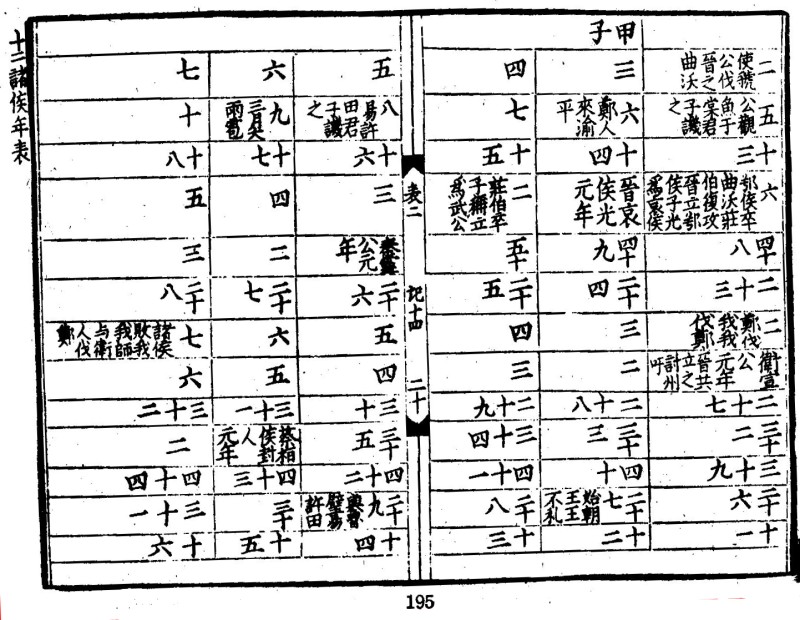 甲子
二 使虢公伐晉之曲沃
五 公觀魚于棠君子譏之
十三
六 鄂侯卒曲沃莊伯復攻晉立鄂侯子光爲哀侯
四十八
二十三
二 鄭伐我我伐鄭
衛宣公元年晉共立之討州吁
二十七
三十二
三十九
二十六
十一
三
六 鄭人來渝平
十四
晉哀侯光元年
四十九
二十四
三
二
二十八
三十三
四十
二十七 始朝王王不礼
十二
四
七
十五
二 莊伯卒子稱立爲武公
五十
二十五
四
三
二十九
三十四
四十一
二十八
十三
表二
記十四
二十
五
八 易許田君子譏之
十六
三
秦寧公元年
二十六
五
四
三十
三十五
四十二
二十九 與魯璧易許田
十四
六
九 三月大雨雹
十七
四
二
二十七
六
五
三十一
蔡桓侯封人元年
四十三
三十
十五
七
十
十八
五
三
二十八
七 諸侯敗我我師与衛人伐鄭
六
三十二
二
四十四
三十一
十六
十二諸侯年表
195